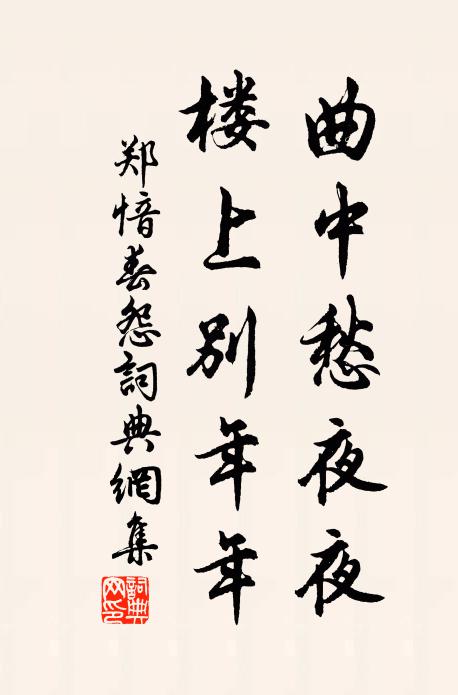 曲中愁夜夜
楼上别年年
郑愔春怨詞典網集
詞典网印